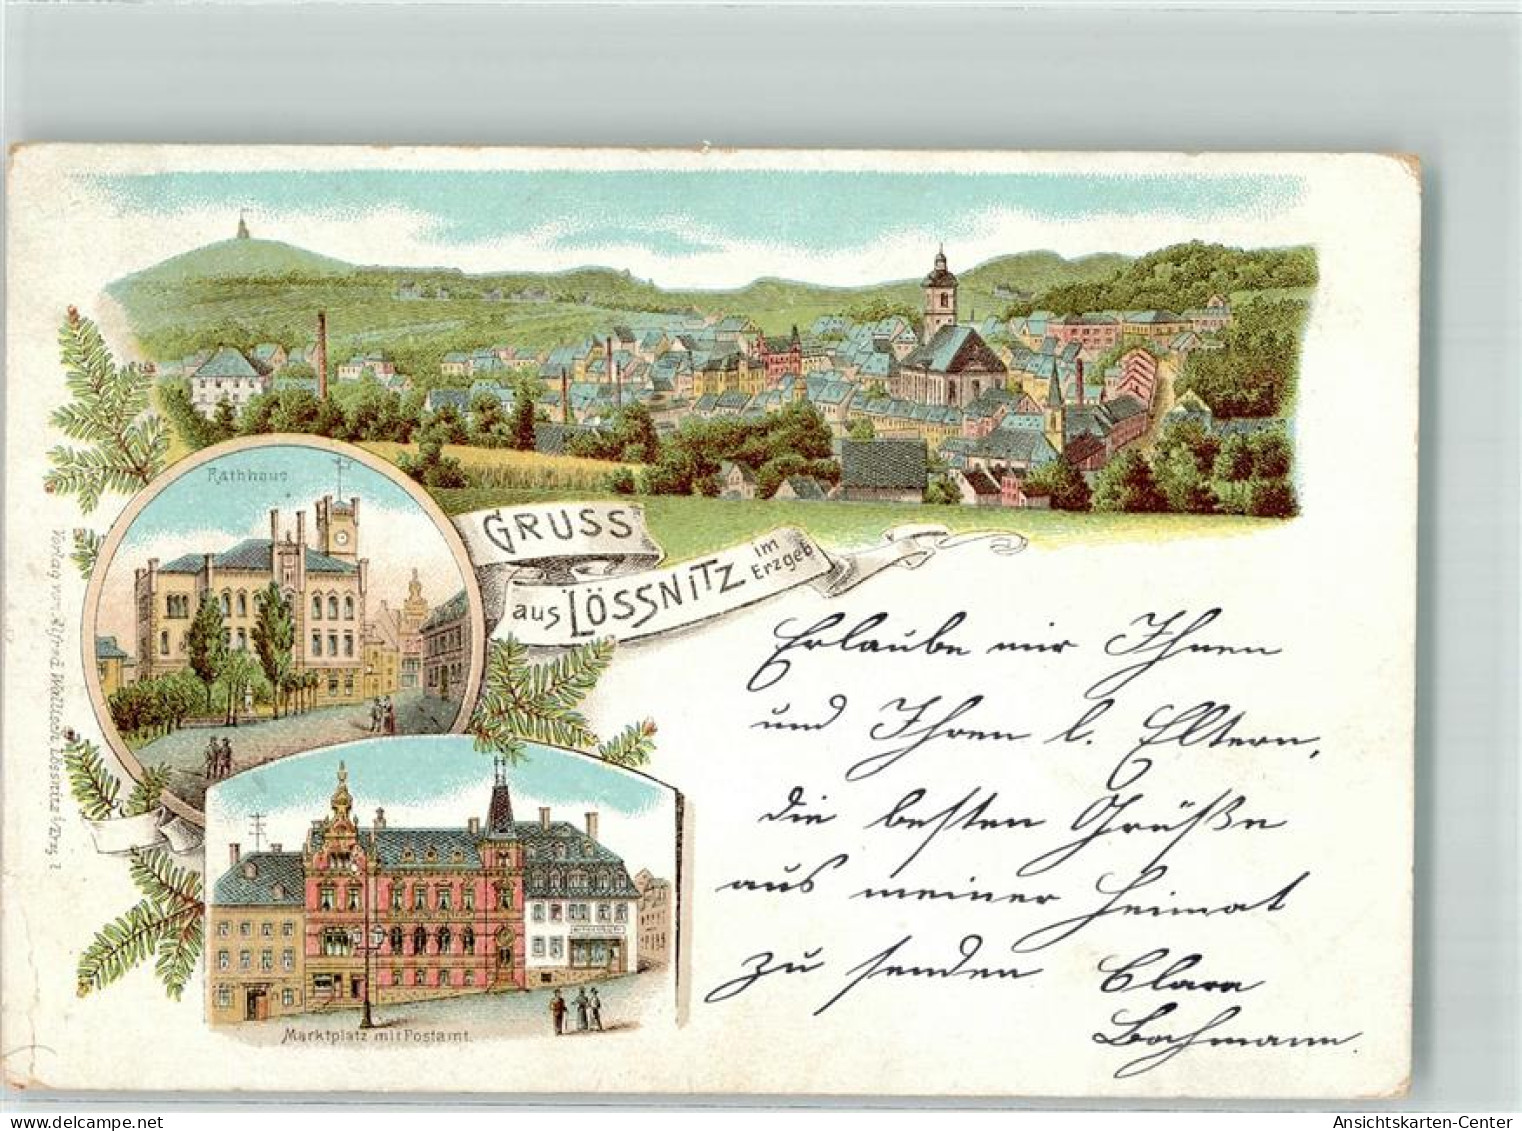 Rathhaus
GRUSS
aus LÖSSNITZ im Erzgeb.
Verlag von Alfred Lössnitz i/Erzg.
Marktplatz mit Postamt.
Erlaube mir Ihnen
und Ihren l. Eltern,
die besten Grüße
aus meiner Heimat
zu senden Clara
Bachmann.
Ansichtskarten-Center